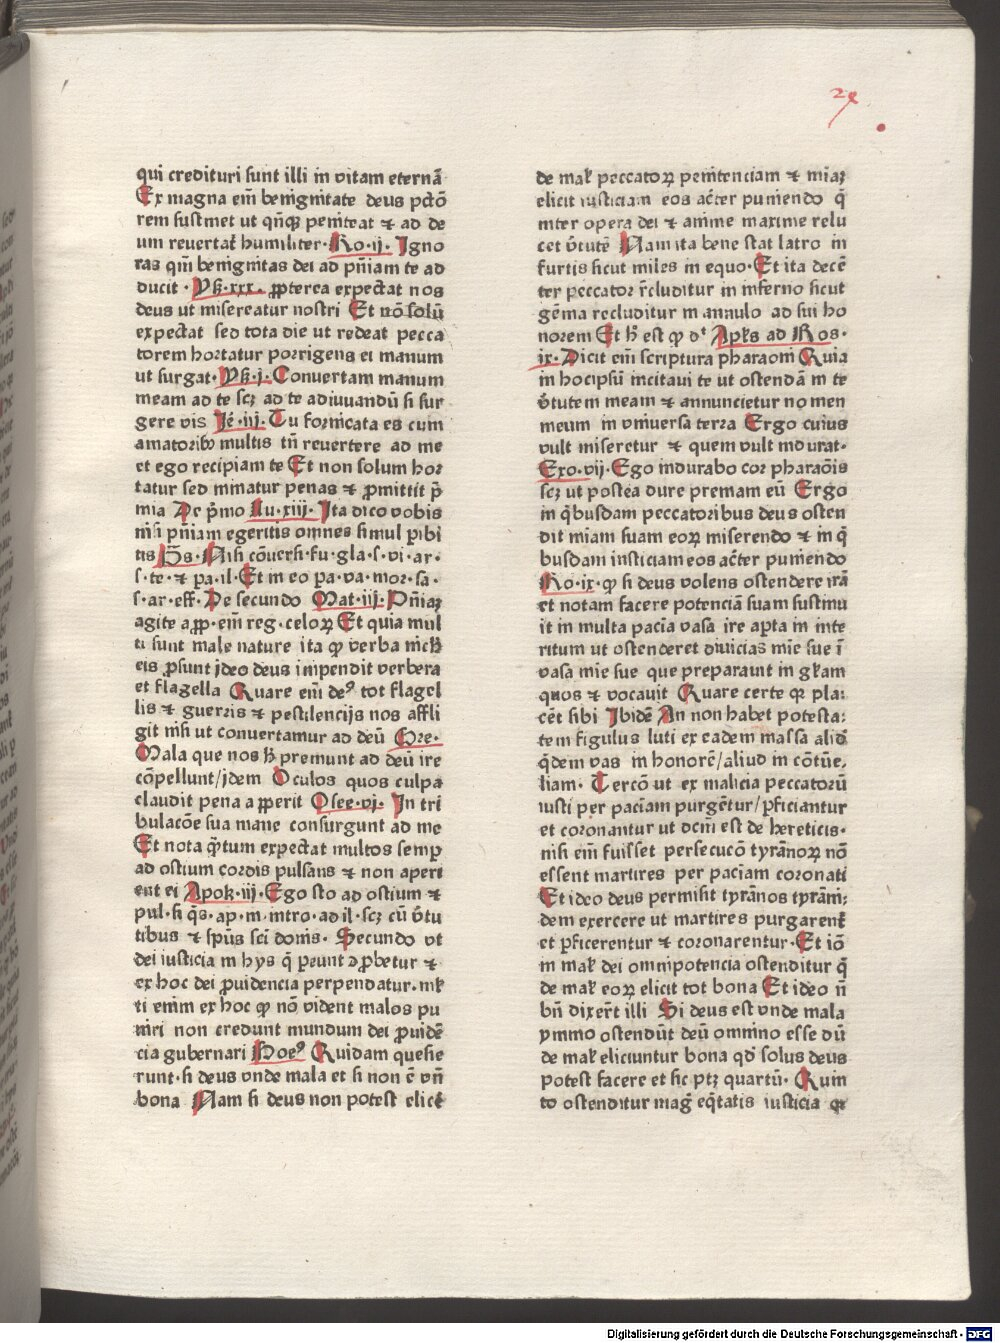 qui credituri sunt illi in vitam eternā
Ex magna em̄ benignitate deus pctō
rem sustinet ut qn̄qꝫ peniteat ⁊ ad de
um reuertat̄ humiliter· Ro·ij· Igno
ras qm̄ benignitas dei ad pn̄iam te ad
ducit · Ysa·xxx· ꝓpterea expectat nos
deus ut misereatur nostri Et nō solū
expectat sed tota die ut redeat pecca
torem hortatur porrigens ei manum
ut surgat· Ysa·j· Conuertam manum
meam ad te scꝫ ad te adiuuandū si sur
gere vis Je·iij· Tu fornicata es cum
amatoribꝰ multis tn̄ reuertere ad me
et ego recipiam te Et non solum hor
tatur sed minatur penas ⁊ ꝓmittit p̄
mia De p̄mo Lu·xiij· Ita dico vobis
nisi pn̄iam egeritis omnes simul ꝑibi
tis Ps· Nisi cōuersi·fu·gla·s·vi·ar·
s·te·⁊ pa·il·Et in eo pa·va·mor·sa·
s·ar·eff· De secundo Mat·iij· Pn̄iaꝫ
agite aꝓp·em̄ reg·celoꝝ Et quia mul
ti sunt male nature ita ꝙ verba mch
eis ꝓsunt jdeo deus impendit verbera
et flagella Quare em̄ deꝰ tot flagel
lis ⁊ guerris ⁊ pestilencijs nos affli
git nisi ut conuertamur ad deū Gre·
Mala que nos h̄ premunt ad deū ire
cōpellunt/jdem Oculos quos culpa
claudit pena aꝑerit Osee·vj· In tri
bulacōe sua mane consurgunt ad me
Et nota qͣtum expectat multos semꝑ
ad ostium cordis pulsans ⁊ non aperi
ent ei Apok·iij· Ego sto ad ostium ⁊
pul·si q̄s·ap·m·intro·ad il·scꝫ cū v̄tu
tibus ⁊ spūs sci donis· Secundo vt
dei iusticia in hys q̄ ꝑeunt ꝯꝓbetur ⁊
ex hoc dei ꝓuidencia perpendatur·mk̄
ti enim ex hoc ꝙ nō vident malos pu
niri non credunt mundum dei ꝓuidē
cia gubernari Boeꝰ Quidam quesie
runt·si deus vnde mala et si non ē vn̄
bona Nam si deus non potest elicē
2e
de mal peccatoꝝ penitenciam ⁊ miaꝫ
elicit iusticiam eos acͥter puniendo q̄
inter opera dei ⁊ anime maxime relu
cet v̄tutē Nam ita bene stat latro in
furtis sicut miles in equo· Et ita decē
ter peccator r̄cluditur in inferno sicut
gēma recluditur in annulo ad sui ho
norem Et h̄ est ꝙ dꝭ Aplus ad Ros·
ix· Dicit em̄ scriptura pharaoni Quia
in hocip̄su incitaui te ut ostendā in te
v̄tutem meam ⁊ annuncietur nomen
meum in vniuersa terra Ergo cuius
vult miseretur ⁊ quem vult indurat·
Exo·vij· Ego indurabo cor pharaōis
scꝫ ut postea dure premam eū Ergo
in qͥbusdam peccatoribus deus osten
dit miam suam eoꝝ miserendo ⁊ in q̄
busdam iusticiam eos acͥter puniendo
Ro·ix· ꝙ si deus volens ostendere irā
et notam facere potenciā suam sustinu
it in multa pacīa vasa ire apta in inte
ritum ut ostenderet diuicias mīe sue ī
vasa mīe sue que preparauit in gl̄am
quos ⁊ vocauit Quare certe qꝛ pla:
cēt sibi Ibidē An non habet potesta:
tem figulus luti ex eadem massa aliqͥ
qͥdem vas in honorē/aliud in cōtūe,
liam· Terciō ut ex malicia peccatorū
iusti per paciam purgēntur/ꝑficiantur
et coronantur ut dcm̄ est de hereticis·
nisi em̄ fuisset persecucō tyrānoꝝ nō
essent martires per paciam coronati
Et ideo deus permisit tyrānos tyrāni;
dem exercere ut martires purgarent̄
et ꝑficerentur ⁊ coronarentur· Et iō
in mal dei omnipotencia ostenditur q̄
de mal eoꝝ elicit tot bona Et ideo n̄
bn̄ dixer̄t illi Si deus est vnde mala
ymmo ostendūt deū omnino esse dū
de mal eliciuntur bona qd̄ solus deus
potest facere et sic ptꝫ quartū· Quin
to ostenditur maḡ eq̄tatis iusticia qꝛ
Digitalisierung gefördert durch die Deutsche Forschungsgemeinschaft · DFG